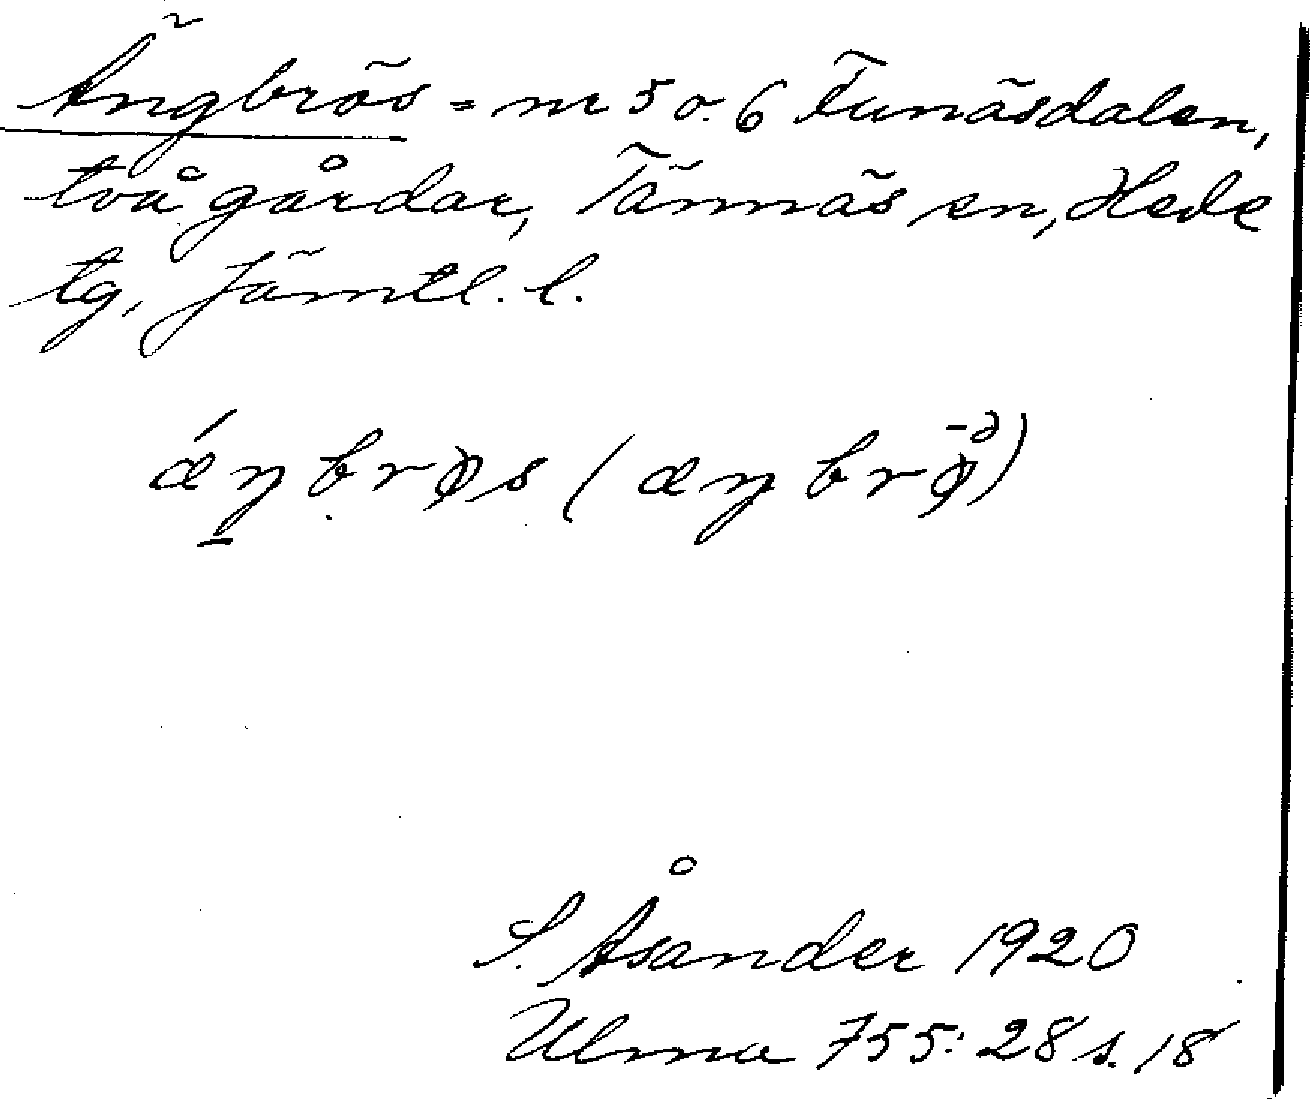 Ängbrös = nr 5 o. 6 Funäsdalen,
två gårdar, Tännäs sn, Hede
tg, Jämtl. l.
ǽŋbrøs (æŋbrø̄ə)
S. Åsander 1920
Ulma 755:28 s. 18